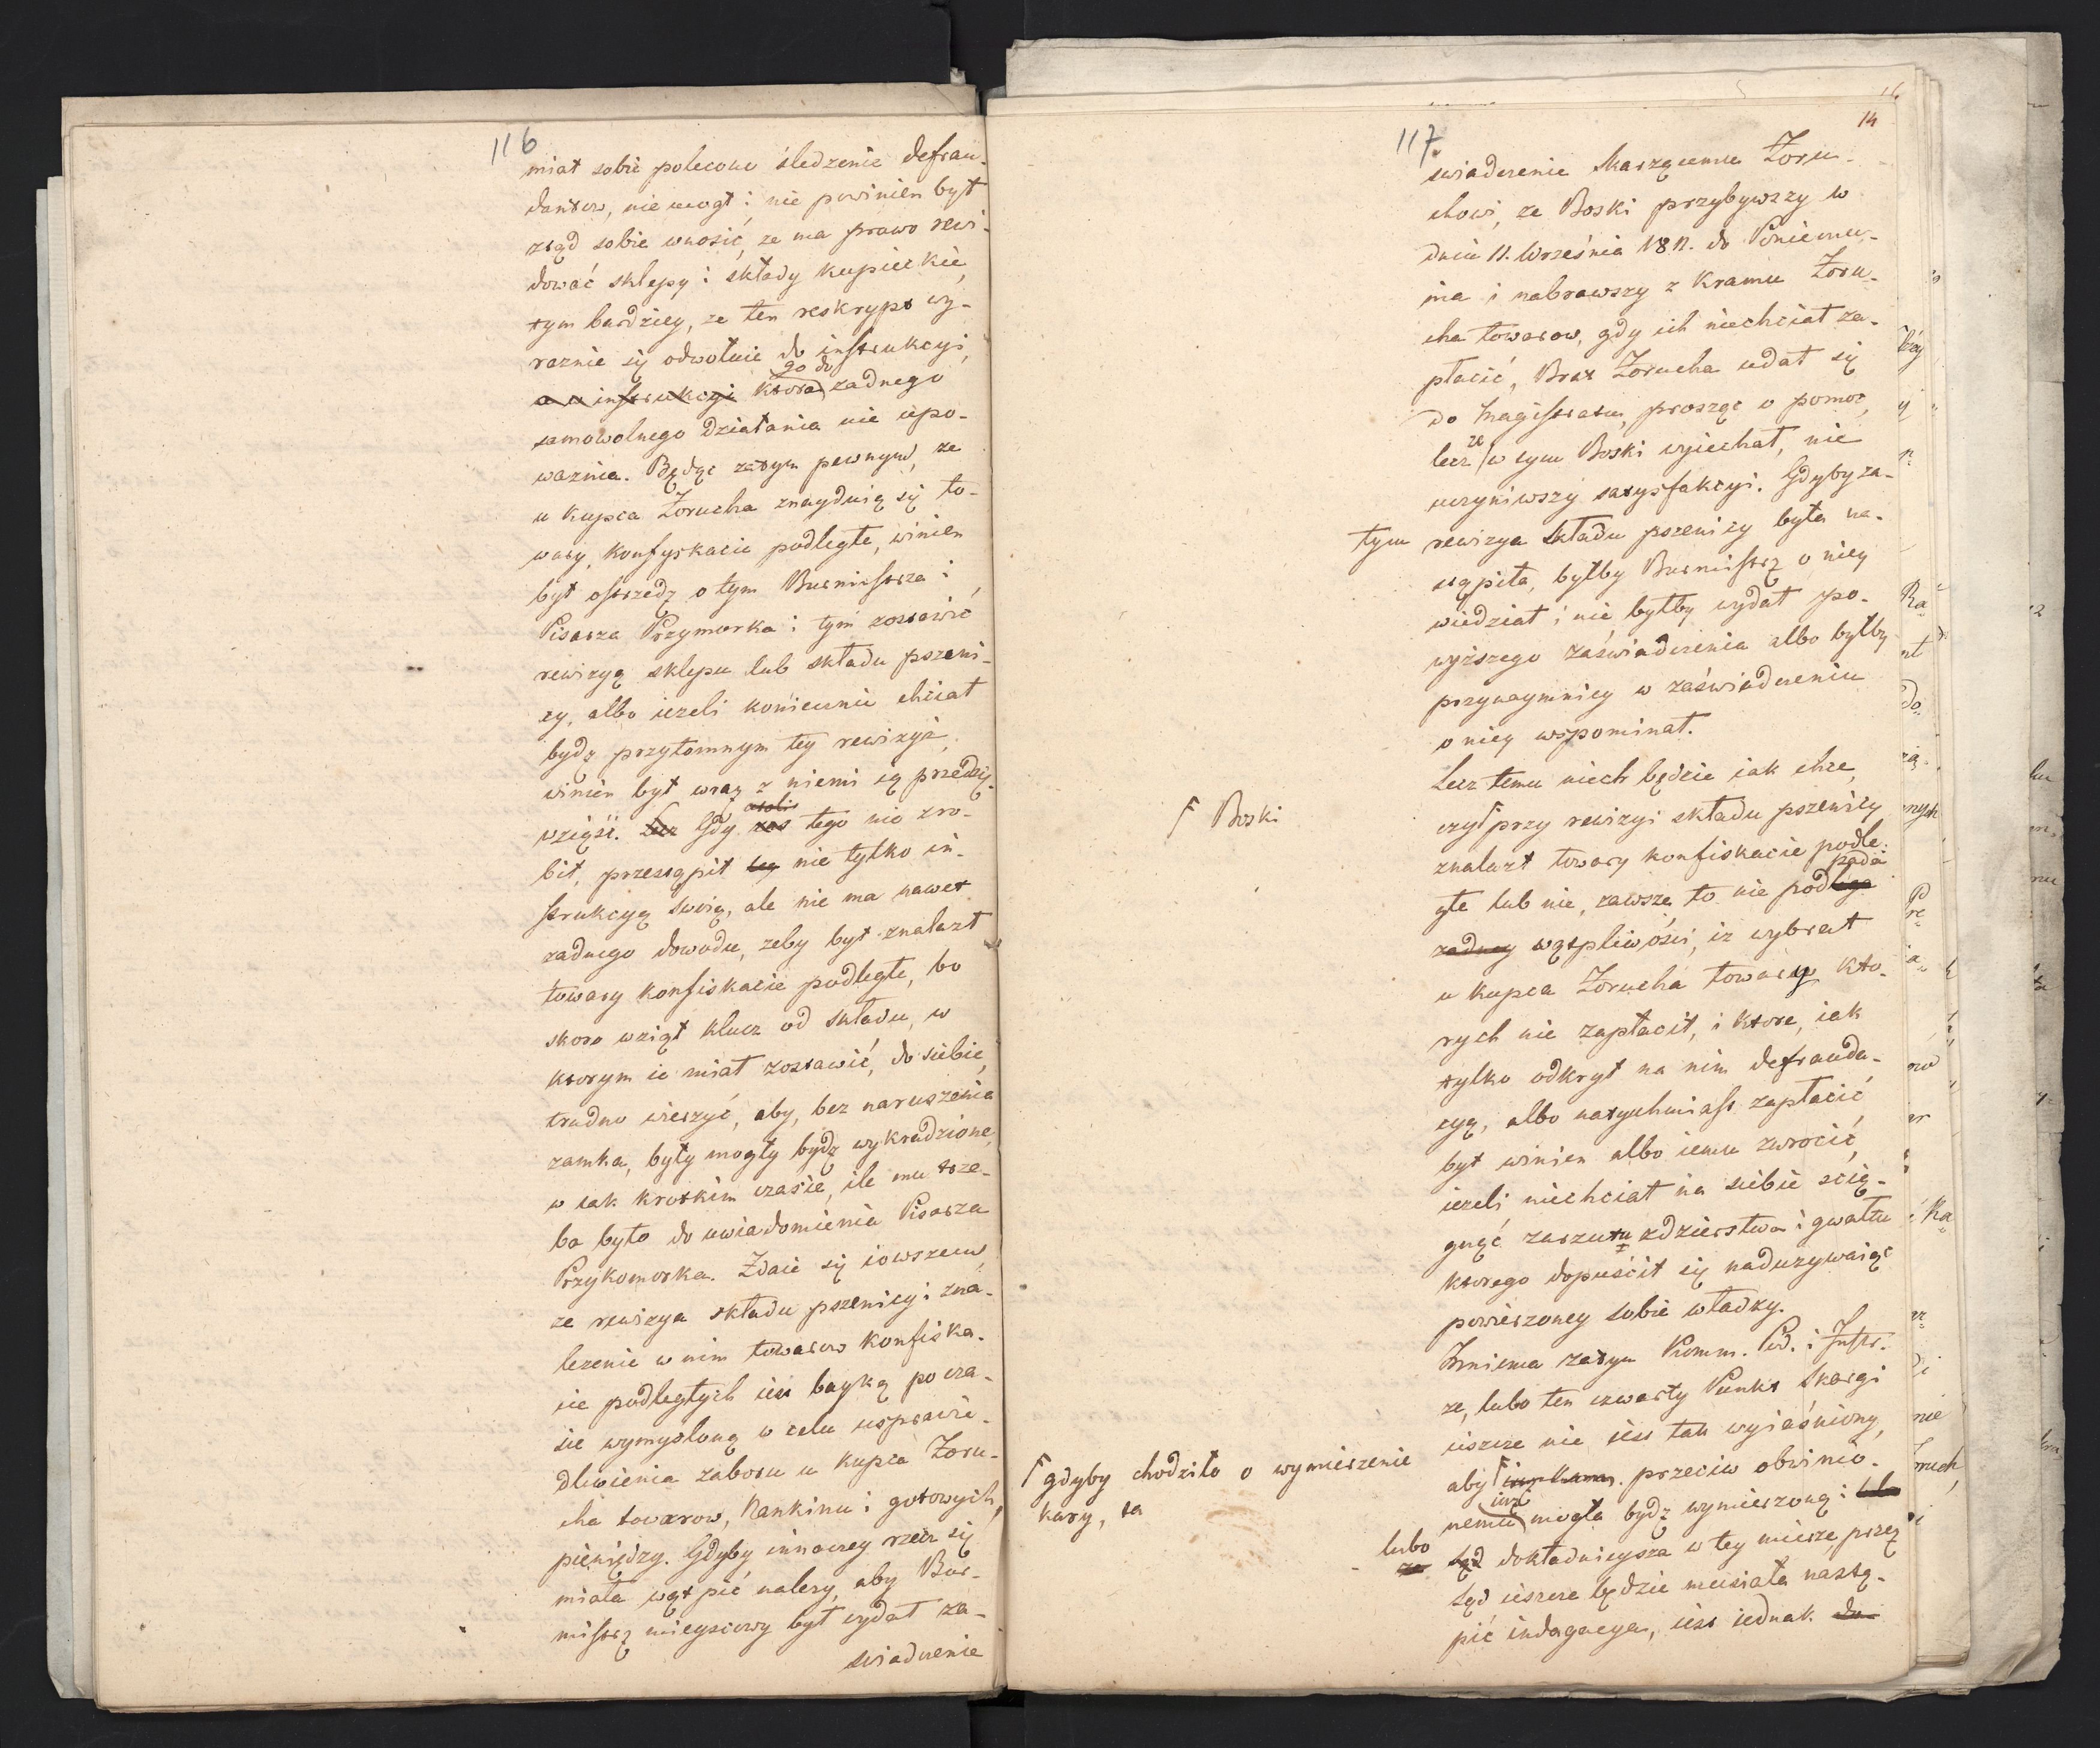 116
miał sobie polecone śledzenie defrau-
dantow, nie mogł i nie powinien był
ztąd sobie wnosić, ze ma prawo rewi-
dować sklepy i składy kupieckie,
tym bardziey, ze ten reskrypt wy-
raznie się odwołuie do instrukcyi,
go do
a a instrukcyi ktora zadnego
samowolnego działania nie upo-
waznia. Będąc zatym pewnym, ze
u kupca Zorucha znayduią się to-
wary, konfyskacie podległe, winien
był ostrzedz o tym Burmistrza i
Pisarza Przymorka i tym zostawić
rewizyą sklepu lub składu pszeni-
cy, albo iezeli koniecznie chciał
bydz przytomnym tey rewizyi,
winien był wraz z niemi ią przedzię-
wziąść. Lecz Gdy zas tego nie zro-
bił, przestąpił tey nie tylko in-
strukcyą swoią, ale nie ma nawet
zadnego dowodu, zeby był znalazł
towary konfiskacie podległe, bo
skoro wziął klucz od składu, w
ktorym ie miał zostawić, do siebie,
trudno wierzyć, aby, bez naruszenia
zamka, były mogły bydz wykradzione,
w tak krotkim czasie, ile mu trze-
ba było do uwiadomienia Pisarza
Przykomorka. Zdaie się iowszem,
ze rewizya składu pszenicy i zna-
lezenie w nim towarow konfiska-
cie podległych iest bayką po cza-
sie wymysloną w celu usprawie-
dliwienia zaboru u kupca Zoru-
cha towarow, Nankinu i gotowych
pieniędzy. Gdyby innaczey rzecz się
miała wątpić nalezy, aby Bur-
mistrz mieyscowy był wydał za-
swiadczenie
14
117.
swiadczenie skarzącemu Zoru-
chowi, ze Boski przybywszy w
dniu 11. Września 1811. do Poniemu-
nia i nabrawszy z kramu Zoru-
cha towarow, gdy ich niechciał za-
płacić, Brat Zorucha udał się
do Magistratu, prosząc o pomoc,
ze
lecz w tym Boski wyiechał, nie
uczyniwszy satysfakcyi. Gdyby za-
tym rewizya składu pszenicy była na-
stąpiła, byłby Burmistrz o niey
wiedział i nie byłby wydał po-
wyższego zaświadczenia albo byłby
przynaymniey w zaświadczeniu
o niey wspominał.
Lecz temu niech będzie iak chce,
Boski
czy przy rewizyi składu pszenicy
znalazł towary konfiskacie podle-
pada
głe lub nie, zawsze to nie podlega
zadney wątpliwości, iz wybrał
u kupca Zorucha towary kto-
rych nie zapłacił, i ktore, iak
tylko odkrył na nim defrauda-
cyą, albo natychmiast zapłacić
był winien albo iemu zwrocić,
iezeli niechciał na siebie scią-
gnąć zarzutu zdzierstwa i gwałtu
ktorego dopuścił się naduzywaiąc
powierzoney sobie władzy.
Mniema zatym Komm. Pod. i Instr.
ze, lubo ten czwarty Punkt skargi
ieszcze nie iest tak wyiaśniony,
gdyby chodziło o wymierzenie
kary, ta
aby przeciw obwinio-
iuz
nemu mogła bydz wymierzoną i
lubo
sąd dokładnieysza w tey mierze przez
sąd ieszcze będzie musiała nastą-
pić indagacya, iest iednak do-